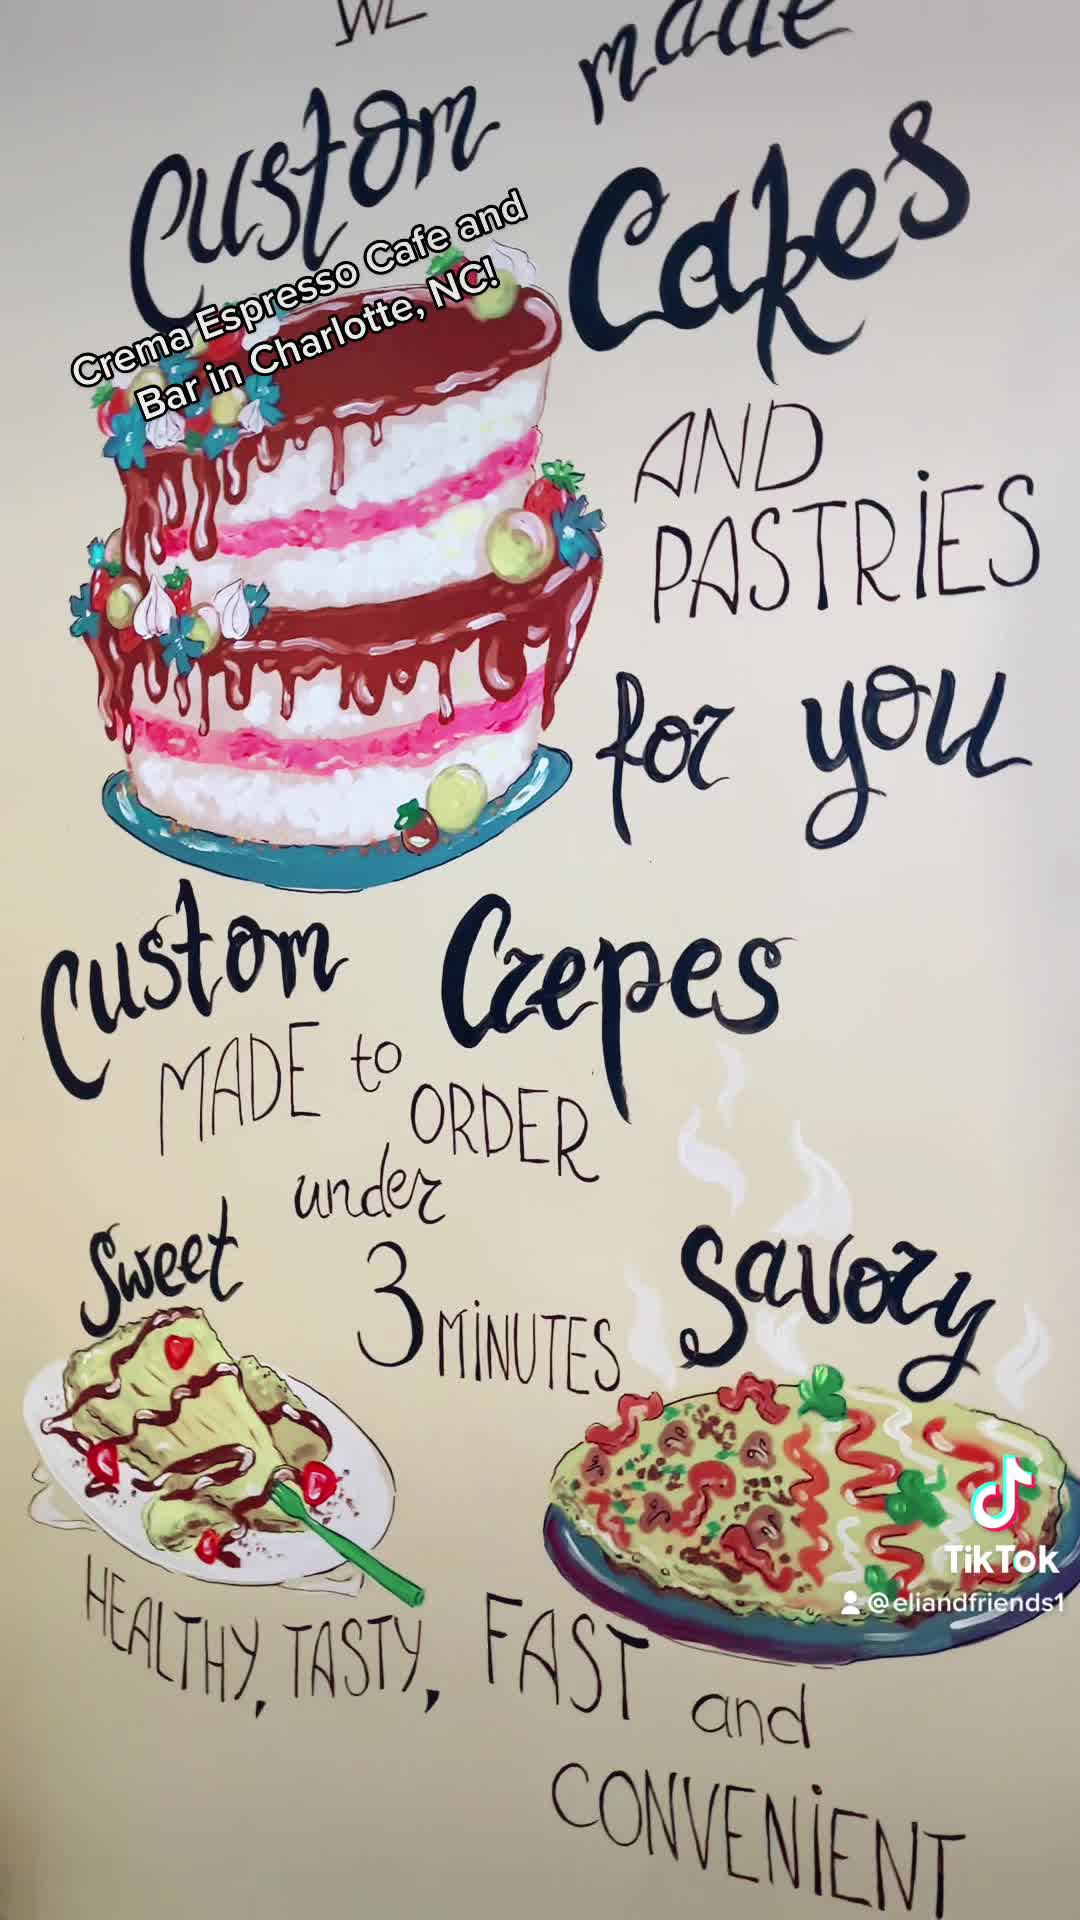 made
Custom
Cakes
Crema Espresso Cafe and
Bar in Charlotte, NC!
AND
PASTRIES
for you
Custom Crepes
MADE to
ORDER
under
Sweet
3 MINUTES
Savory
TikTok
@eliandfriends1
HEALTHY, TASTY, FAST and
CONVENIENT